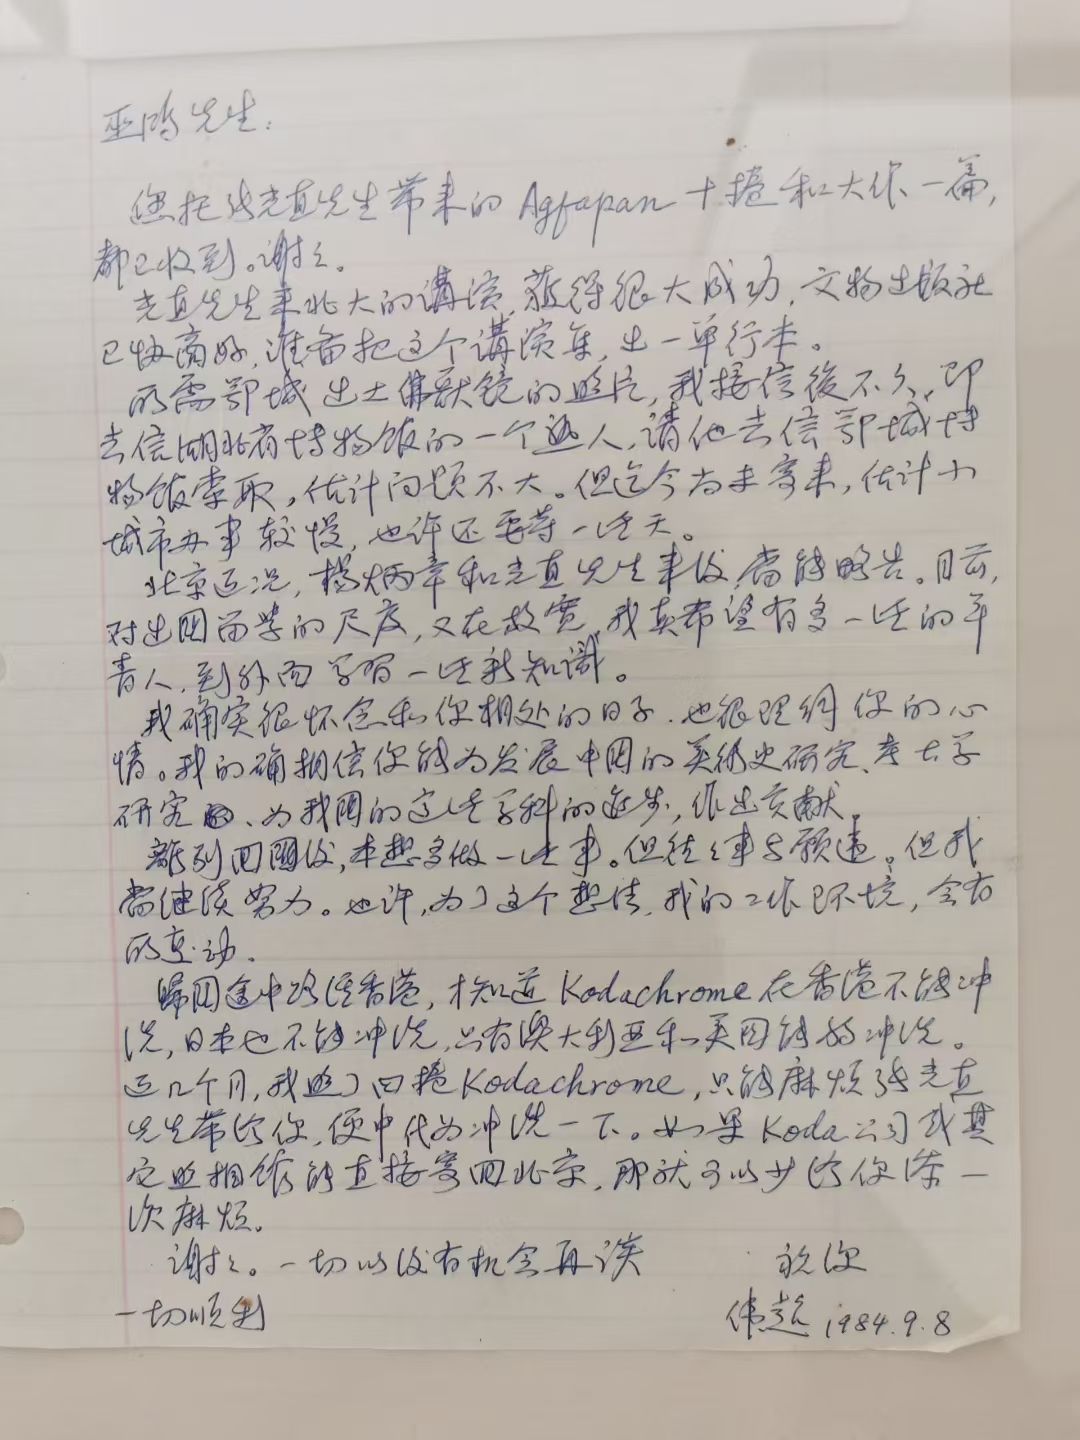 巫鸿先生:
您托张光直先生带来的 Agfapan 十捲和大作一篇,
都已收到。谢々。
光直先生来北大的講演,获得很大成功,文物出版社
已协商好,准备把这个講演集,出一单行本。
所需鄂城出土佛兽镜的照片,我接信後不久,即
去信湖北省博物馆的一个熟人,请他去信鄂城博
物馆索取,估计问题不大。但迄今尚未寄来,估计小
城市办事较慢,也许还要等一些天。
北京近况,楊炳章和光直先生来后,当能略告。目前,
对出国留学的尺度,又在放宽,我真希望有多一些的年
青人,到外面学习一些新知識。
我确实很怀念和你相处的日子,也很理解你的心
情。我的确相信你能为发展中国的美術史研究、考古学
研究、为我国的这些学科的进步,作出贡献。
離别回國后,本想多做一些事。但往々事与願違。但我
当继续努力。也许,为了这个想法,我的工作环境,会有
所变动。
歸国途中路经香港,才知道 Kodachrome 在香港不能冲
洗,日本也不能冲洗,只有澳大利亚和美国能够冲洗。
近几个月,我照了四捲 Kodachrome,只能麻烦张光直
先生带给你,便中代为冲洗一下。如果 Koda 公司或其
它照相馆能直接寄回北京,那就可以少给你添一
次麻烦。
谢々。一切以后有机会再谈 祝你
一切顺利
伟超 1984.9.8